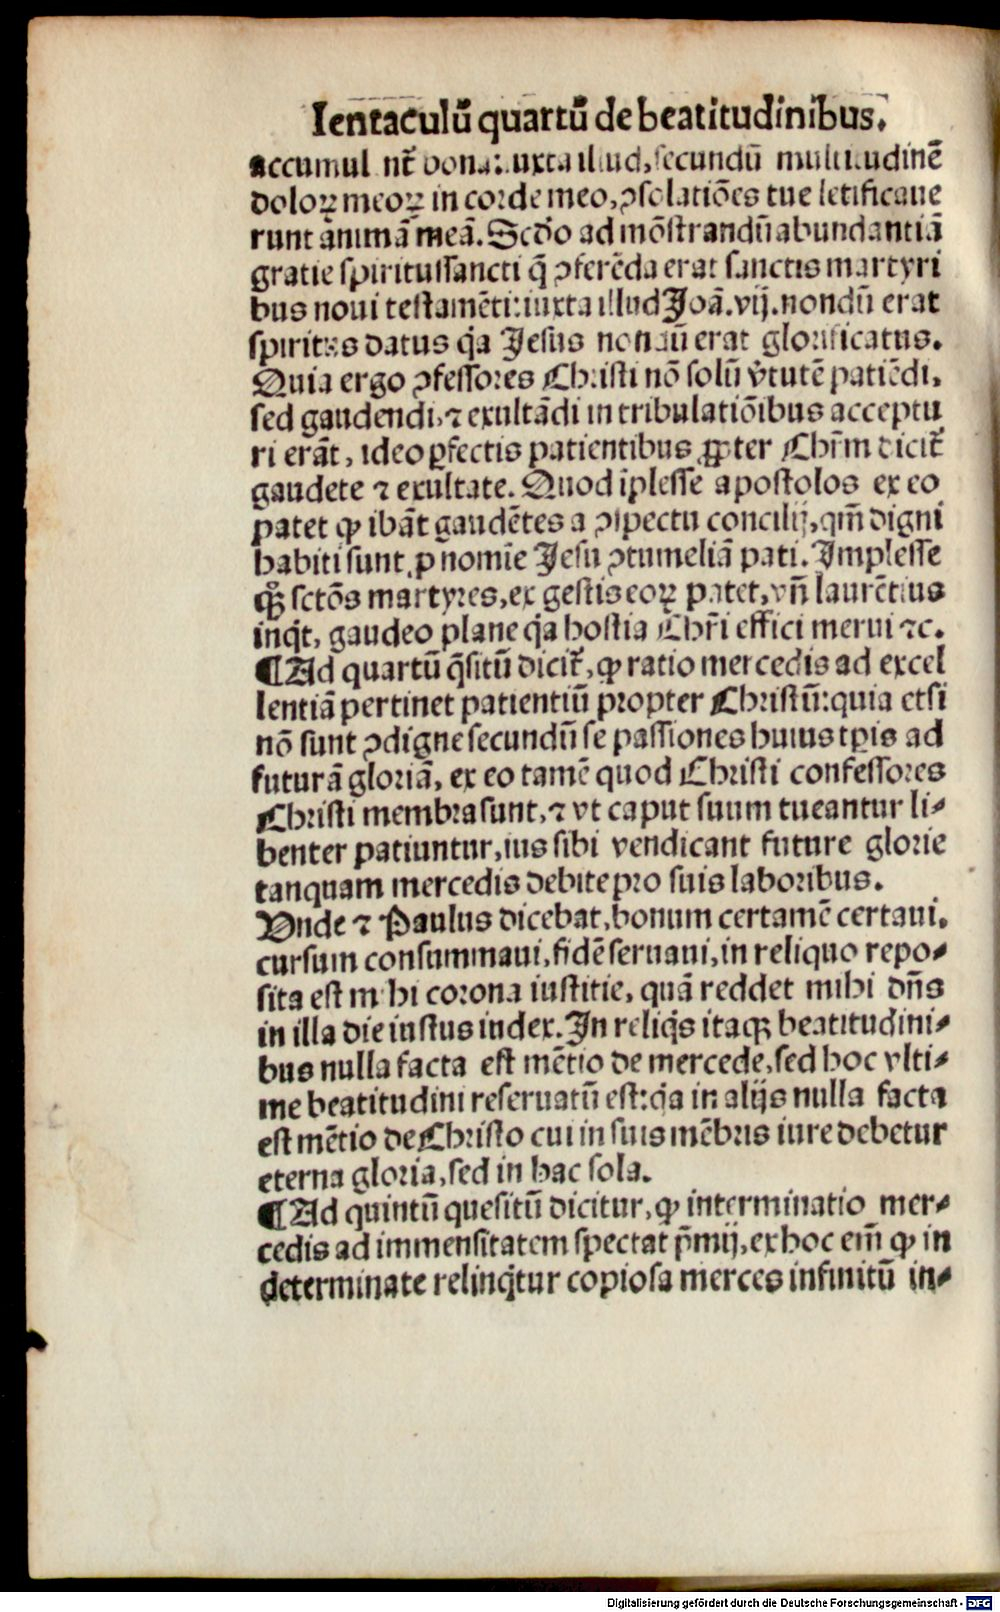 Ientaculū quartū de beatitudinibus.
accumul nt᷑ bona: iuxta illud, secundū multitudinē
doloꝝ meoꝝ in corde meo, ꝯsolatiōes tue letificaue
runt animā meā. Scd̄o ad mōstrandū abundantiā
gratie spiritussancti q̄ ꝯferēda erat sanctis martyri
bus noui testamēti: iuxta illud Joā. vij. nondū erat
spiritus datus q̇a Jesus nondū erat glorificatus.
Quia ergo ꝯfessores Christi nō solū v̄tutē patiēdi,
sed gaudendi, ⁊ exultādi in tribulatiōibus acceptu
ri erāt, ideo ꝑfectis patientibus ꝓpter Chr̄m dicit᷑
gaudete ⁊ exultate. Quod īplesse apostolos ex eo
patet ꝙ ibāt gaudētes a ꝯspectu concilij, qm̄ digni
habiti sunt, ꝓ nomīe Jesu ꝯtumeliā pati. Implesse
qꝫ sctōs martyres, ex gestis eoꝝ patet, vn̄ laurētius
inqt, gaudeo plane q̇a hostia Chr̄i effici merui ⁊c.
¶Ad quartū q̄situ̅ dicit᷑, ꝙ ratio mercedis ad excel
lentiā pertinet patientiū propter Christū: quia etsi
nō sunt ꝯdigne secundū se passiones huius tꝑis ad
futurā gloriā, ex eo tamē quod Christi confessores
Christi membra sunt, ⁊ vt caput suum tueantur li⸗
benter patiuntur, ius sibi vendicant future glorie
tanquam mercedis debite pro suis laboribus.
Vnde ⁊ Paulus dicebat, bonum certamē certaui,
cursum consummaui, fidē seruaui, in reliquo repo⸗
sita est m hi corona iustitie, quā reddet mihi dn̄s
in illa die iustus iudex. In reliq̇s itaqꝫ beatitudini⸗
bus nulla facta est mētio de mercede, sed hoc vlti⸗
me beatitudini reseruatū est: q̇a in alijs nulla facta
est mētio de Christo cui in suis mēbris iure debetur
eterna gloria, sed in hac sola.
¶Ad quintū quesitū dicitur, ꝙ interminatio mer⸗
cedis ad immensitatem spectat p̄mij, ex hoc em̄ ꝙ in
determinate relinq̇tur copiosa merces infinitū in⸗
Digitalisierung gefördert durch die Deutsche Forschungsgemeinschaft - DFG